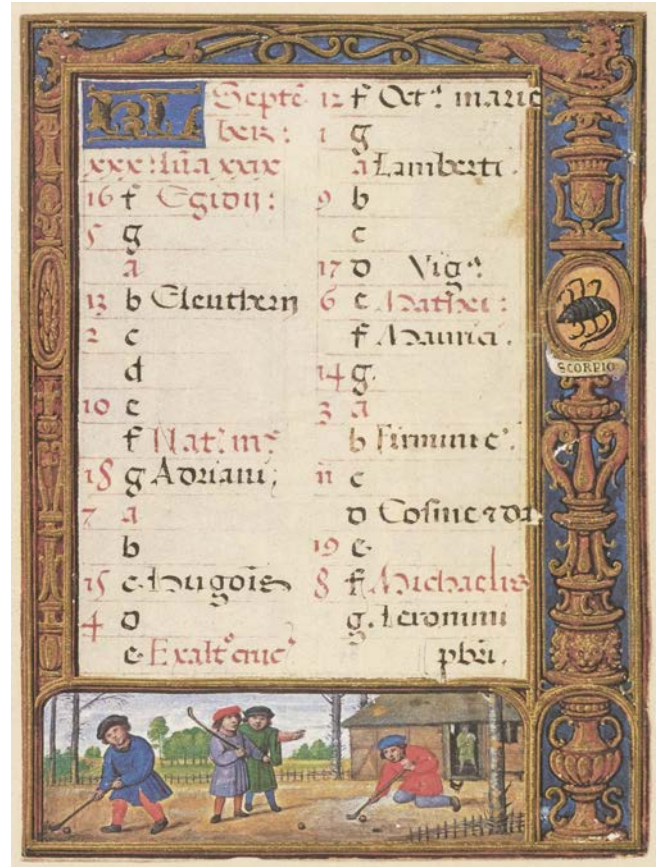 KL Septē
ber:
xxx: lūa xxix
16 f Egidij:
5 g
a
13 b Eleutherij
2 c
d
10 e
f Nat: m:
18 g Adriani;
7 a
b
15 c. Hugois
4 d
e. Exalt° cruc'
12 f Oct: marie
1 g
a Lamberti.
9 b
c
17 d Vig:
6 e Mathei:
f Maurici.
14 g.
3 a
b Firmini e'.
11 c
d Cosme
19 e.
8 f. Michaelis
g. Ieronimi
pbri.
SCORPIO